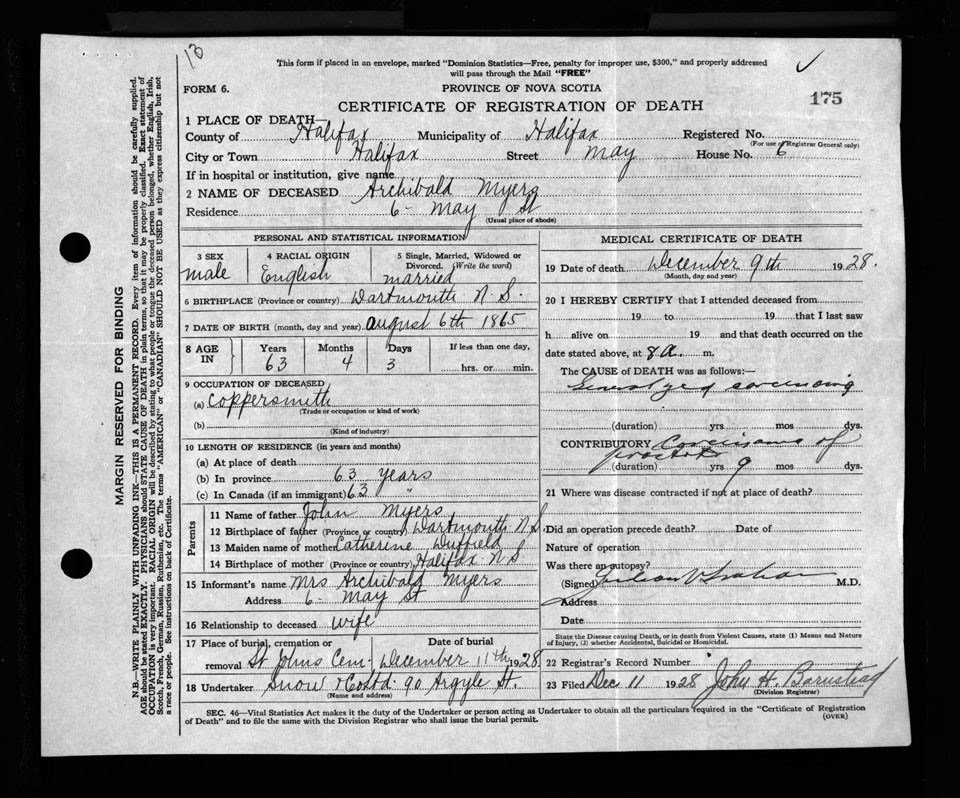 13
This form if placed in an envelope, marked "Dominion Statistics—Free, penalty for improper use, $300," and properly addressed
will pass through the Mail "FREE"
FORM 6.
PROVINCE OF NOVA SCOTIA
175
CERTIFICATE OF REGISTRATION OF DEATH
1 PLACE OF DEATH—
County of Halifax Municipality of Halifax Registered No.
(For use of Registrar General only)
City or Town Halifax Street May House No. 6
If in hospital or institution, give name
2 NAME OF DECEASED Archibald Myers
Residence 6 - May St
(Usual place of abode)
PERSONAL AND STATISTICAL INFORMATION
3 SEX 4 RACIAL ORIGIN 5 Single, Married, Widowed or Divorced. (Write the word)
male English married
6 BIRTHPLACE (Province or country) Dartmouth N.S.
7 DATE OF BIRTH (month, day and year) August 6th 1865
8 AGE IN Years Months Days If less than one day,
63 4 3 hrs. or min.
9 OCCUPATION OF DECEASED
(a) Coppersmith
(Trade or occupation or kind of work)
(b)
(Kind of industry)
10 LENGTH OF RESIDENCE (in years and months)
(a) At place of death
(b) In province 63 years
(c) In Canada (if an immigrant) 63 "
Parents
11 Name of father John Myers
12 Birthplace of father (Province or country) Dartmouth N.S.
13 Maiden name of mother Catherine Duffield
14 Birthplace of mother (Province or country) Halifax N.S
15 Informant's name Mrs Archibald Myers
Address 6 - May St
16 Relationship to deceased wife
17 Place of burial, cremation or removal Date of burial
St Johns Cem - December 11th 1928
18 Undertaker Snow & Co Ltd. 90 Argyle St.
(Name and address)
MEDICAL CERTIFICATE OF DEATH
19 Date of death December 9th 1928.
(Month, day and year)
20 I HEREBY CERTIFY that I attended deceased from
19 to 19 that I last saw
h alive on 19 and that death occurred on the
date stated above, at 8 a. m.
The CAUSE OF DEATH was as follows:—
(duration) yrs mos dys.
CONTRIBUTORY Carcinoma of
prostate
(duration) yrs 9 mos dys.
21 Where was disease contracted if not at place of death?
Did an operation precede death? Date of
Nature of operation
Was there an autopsy?
(Signed) M.D.
Address
Date
State the Disease causing Death, or in death from Violent Causes, state (1) Means and Nature
of Injury, (2) whether Accidental, Suicidal or Homicidal.
22 Registrar's Record Number
23 Filed Dec 11 1928 John H. Barnstead
(Division Registrar)
SEC. 46—Vital Statistics Act makes it the duty of the Undertaker or person acting as Undertaker to obtain all the particulars required in the "Certificate of Registration
of Death" and to file the same with the Division Registrar who shall issue the burial permit.
(OVER)
MARGIN RESERVED FOR BINDING
N.B.—WRITE PLAINLY WITH UNFADING INK—THIS IS A PERMANENT RECORD. Every item of information should be carefully supplied.
AGE should be stated EXACTLY. PHYSICIANS should STATE CAUSE OF DEATH in plain terms, so that it may be properly classified. Exact statement of
OCCUPATION is very important. RACIAL ORIGIN will be described by stating to what people or tongue the deceased person belonged, whether English, Irish,
Scotch, French, German, Russian, Ruthenian, etc. The terms "AMERICAN" or "CANADIAN" SHOULD NOT BE USED as they express citizenship but not
a race or people. See instructions on back of Certificate.